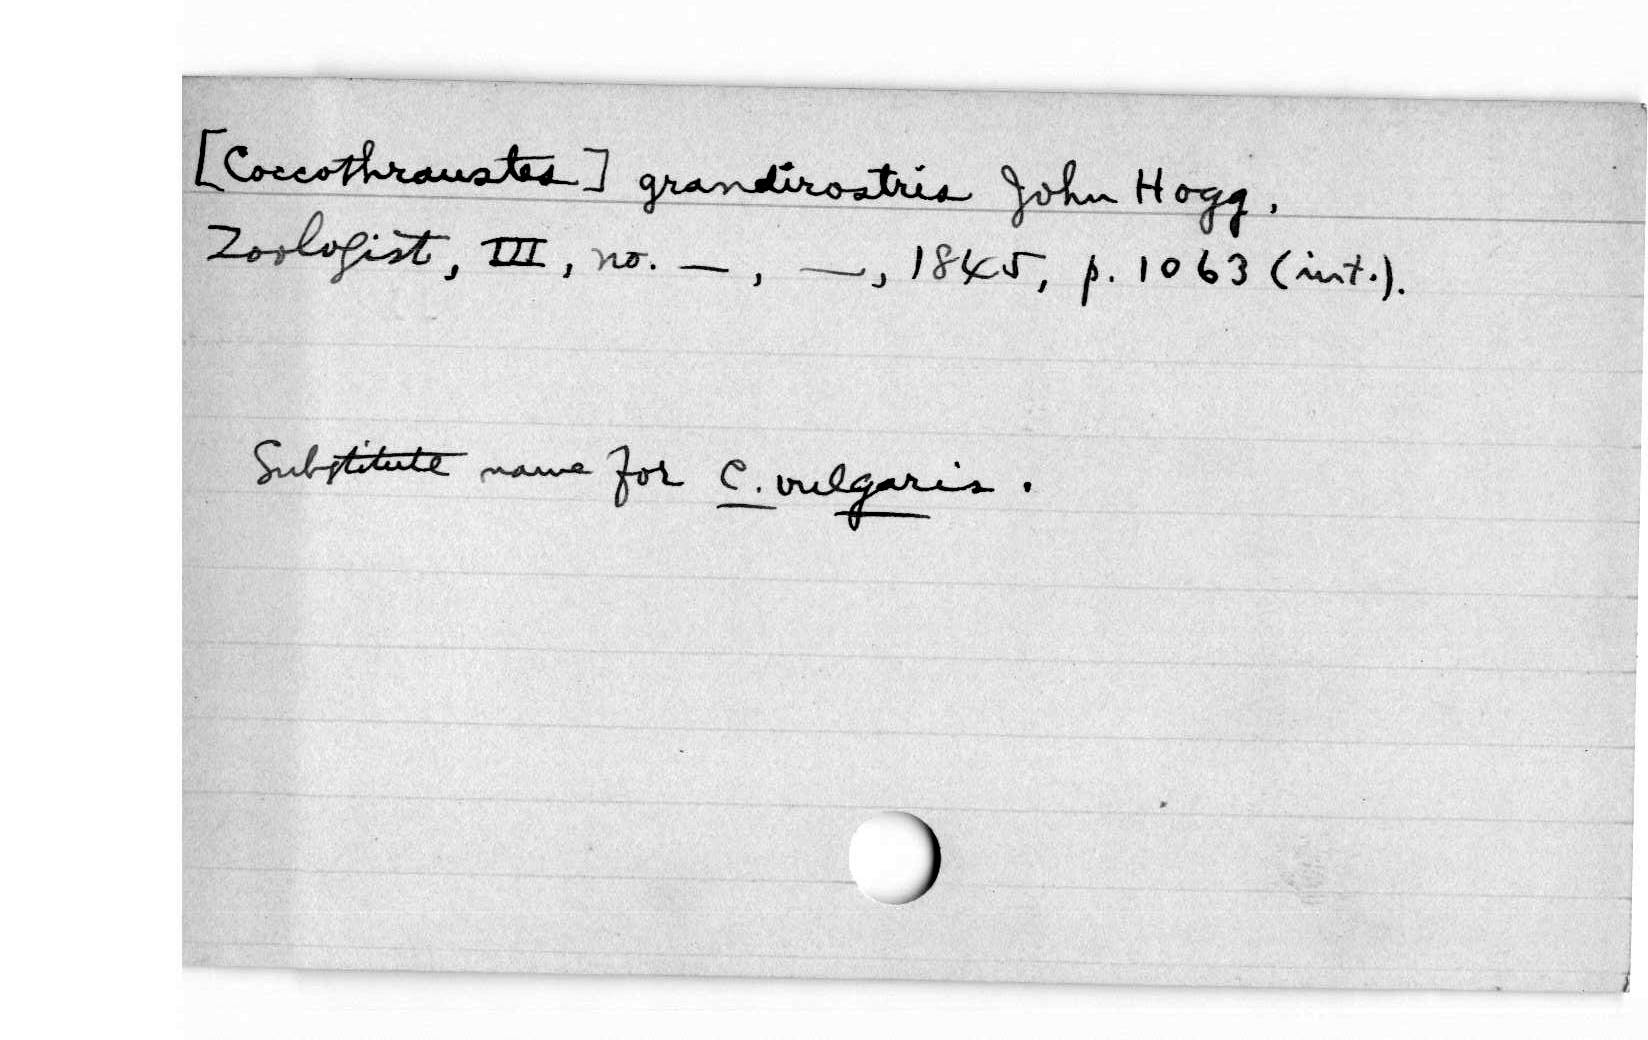 [Coccothraustes] grandirostris John Hogg.
Zoologist, III, no. —, —, 1845, p. 1063 (int.).
Substitute name for C. vulgaris.